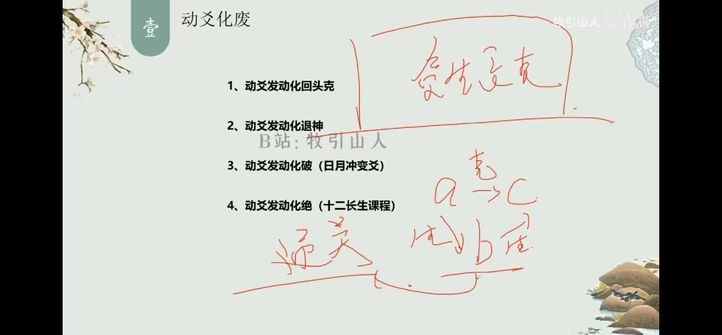 壹
动爻化废
牧引山人
bilibili
1、动爻发动化回头克
2、动爻发动化退神
B站：牧引山人
3、动爻发动化破（日月冲变爻）
4、动爻发动化绝（十二长生课程）
克
a → c
生 b 生
通关